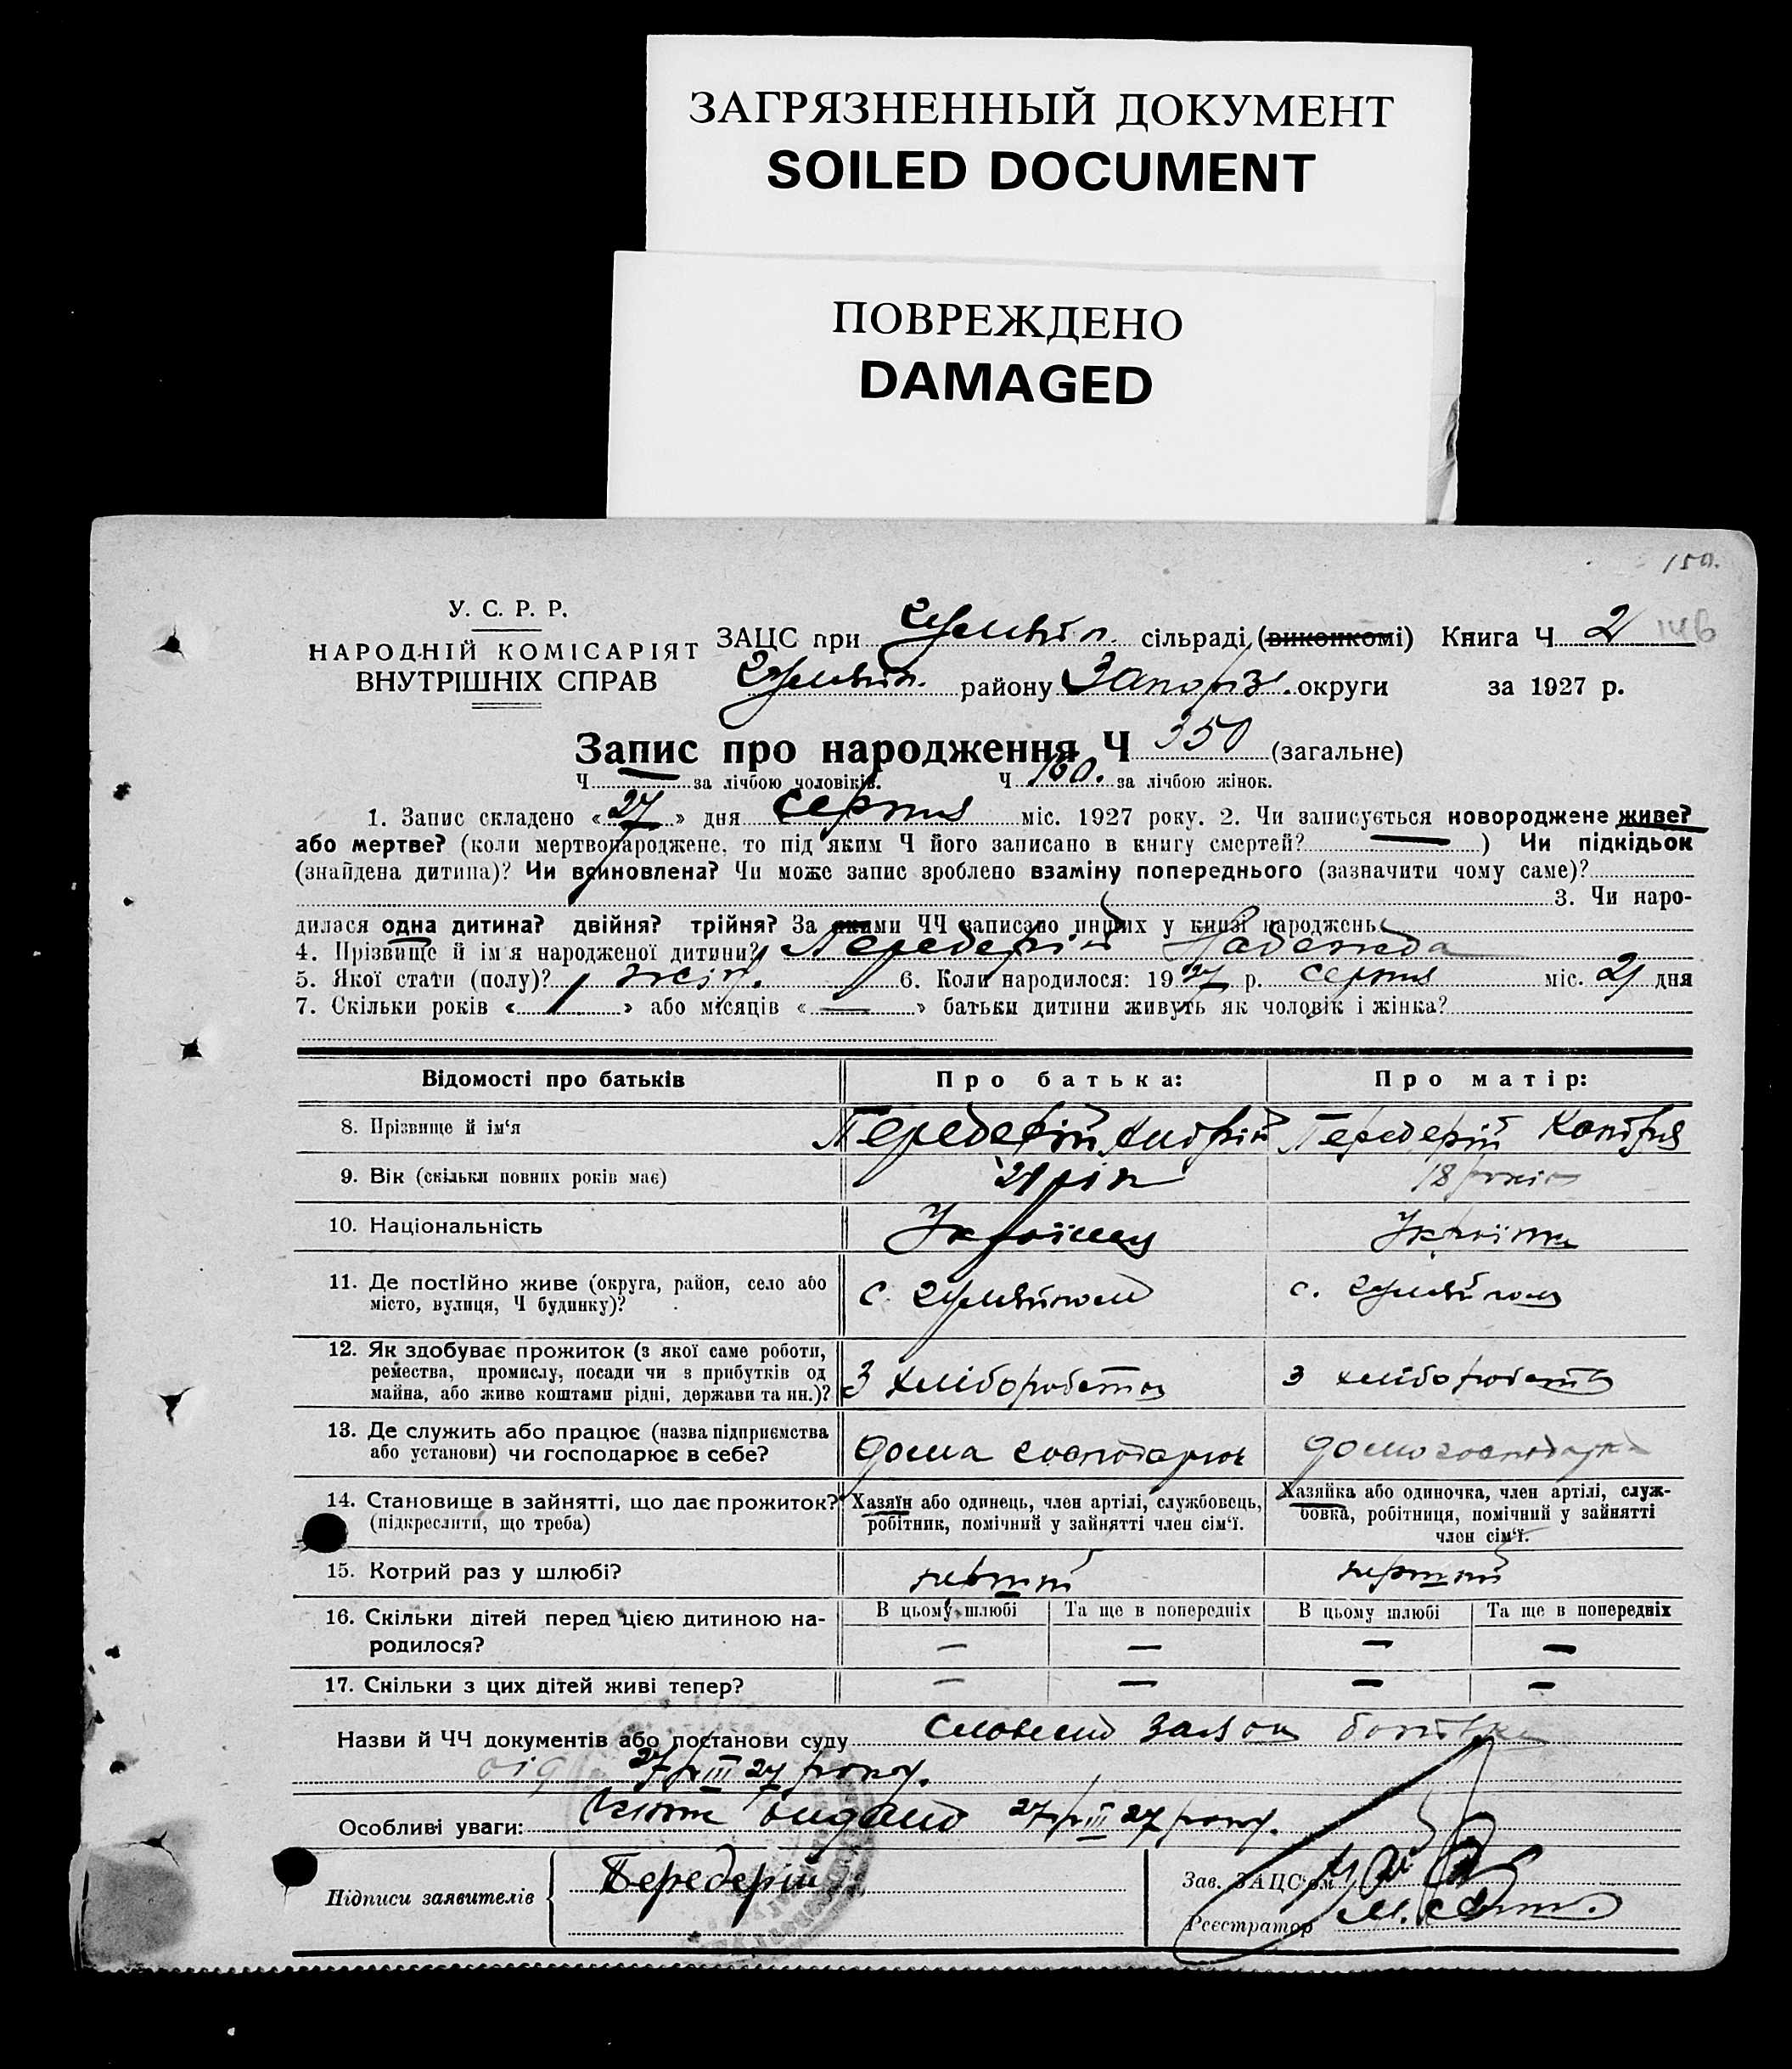 ЗАГРЯЗНЕННЫЙ ДОКУМЕНТ
SOILED DOCUMENT
ПОВРЕЖДЕНО
DAMAGED
150.
У. С. Р. Р.
НАРОДНІЙ КОМІСАРІЯТ
ВНУТРІШНІХ СПРАВ
ЗАЦС при Гуляйп. сільраді (виконкомі) Книга Ч 2 146
Гуляйп. району Запоріз. округи за 1927 р.
Запис про народження Ч 350 (загальне)
Ч — за лічбою чоловіків. Ч 160. за лічбою жінок.
1. Запис складено «27» дня серпня міс. 1927 року. 2. Чи записується новороджене живе?
або мертве? (коли мертвонароджене, то під яким Ч його записано в книгу смертей? — ) Чи підкідьок
(знайдена дитина)? Чи всиновлена? Чи може запис зроблено взаміну попереднього (зазначити чому саме)?
3. Чи наро-
дилася одна дитина? двійня? трійня? За якими ЧЧ записано инших у книзі народжень
4. Прізвище й ім'я народженої дитини? Передерій Надежда
5. Якої стати (полу)? жін. 6. Коли народилося: 1927 р. серпня міс. 21 дня
7. Скільки років « 1 » або місяців « — » батьки дитини живуть як чоловік і жінка?
Відомості про батьків
Про батька:
Про матір:
8. Прізвище й ім'я
Передерій Андрій
Передерій
9. Вік (скільки повних років має)
21 рік
18 років
10. Національність
Українець
Українка
11. Де постійно живе (округа, район, село або
місто, вулиця, Ч будинку)?
с. Гуляйполе
с. Гуляйполе
12. Як здобуває прожиток (з якої саме роботи,
ремества, промислу, посади чи з прибутків од
майна, або живе коштами рідні, держави та ин.)?
З хліборобства
З хліборобства
13. Де служить або працює (назва підприємства
або установи) чи господарює в себе?
Дома господарює
Дома господарює
14. Становище в зайнятті, що дає прожиток?
(підкреслити, що треба)
Хазяїн або одинець, член артілі, службовець,
робітник, помічний у зайнятті член сім'ї.
Хазяйка або одиночка, член артілі, служ-
бовка, робітниця, помічний у зайнятті
член сім'ї.
15. Котрий раз у шлюбі?
перший
перший
16. Скільки дітей перед цією дитиною на-
родилося?
В цьому шлюбі
Та ще в попередніх
В цьому шлюбі
Та ще в попередніх
— — — —
17. Скільки з цих дітей живі тепер?
— — — —
Назви й ЧЧ документів або постанови суду словесно заява батька
від 27/VIII 27 року.
Особливі уваги: видано 27/VIII 27 року.
Підписи заявителів
Передерій
Зав. ЗАЦС'ом
Реєстратор